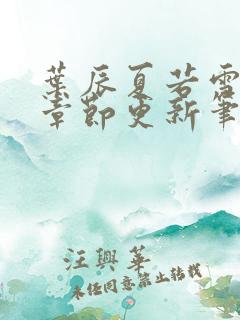 葉辰夏若雪
章節更新筆
汪興華
未經同意禁止轉載